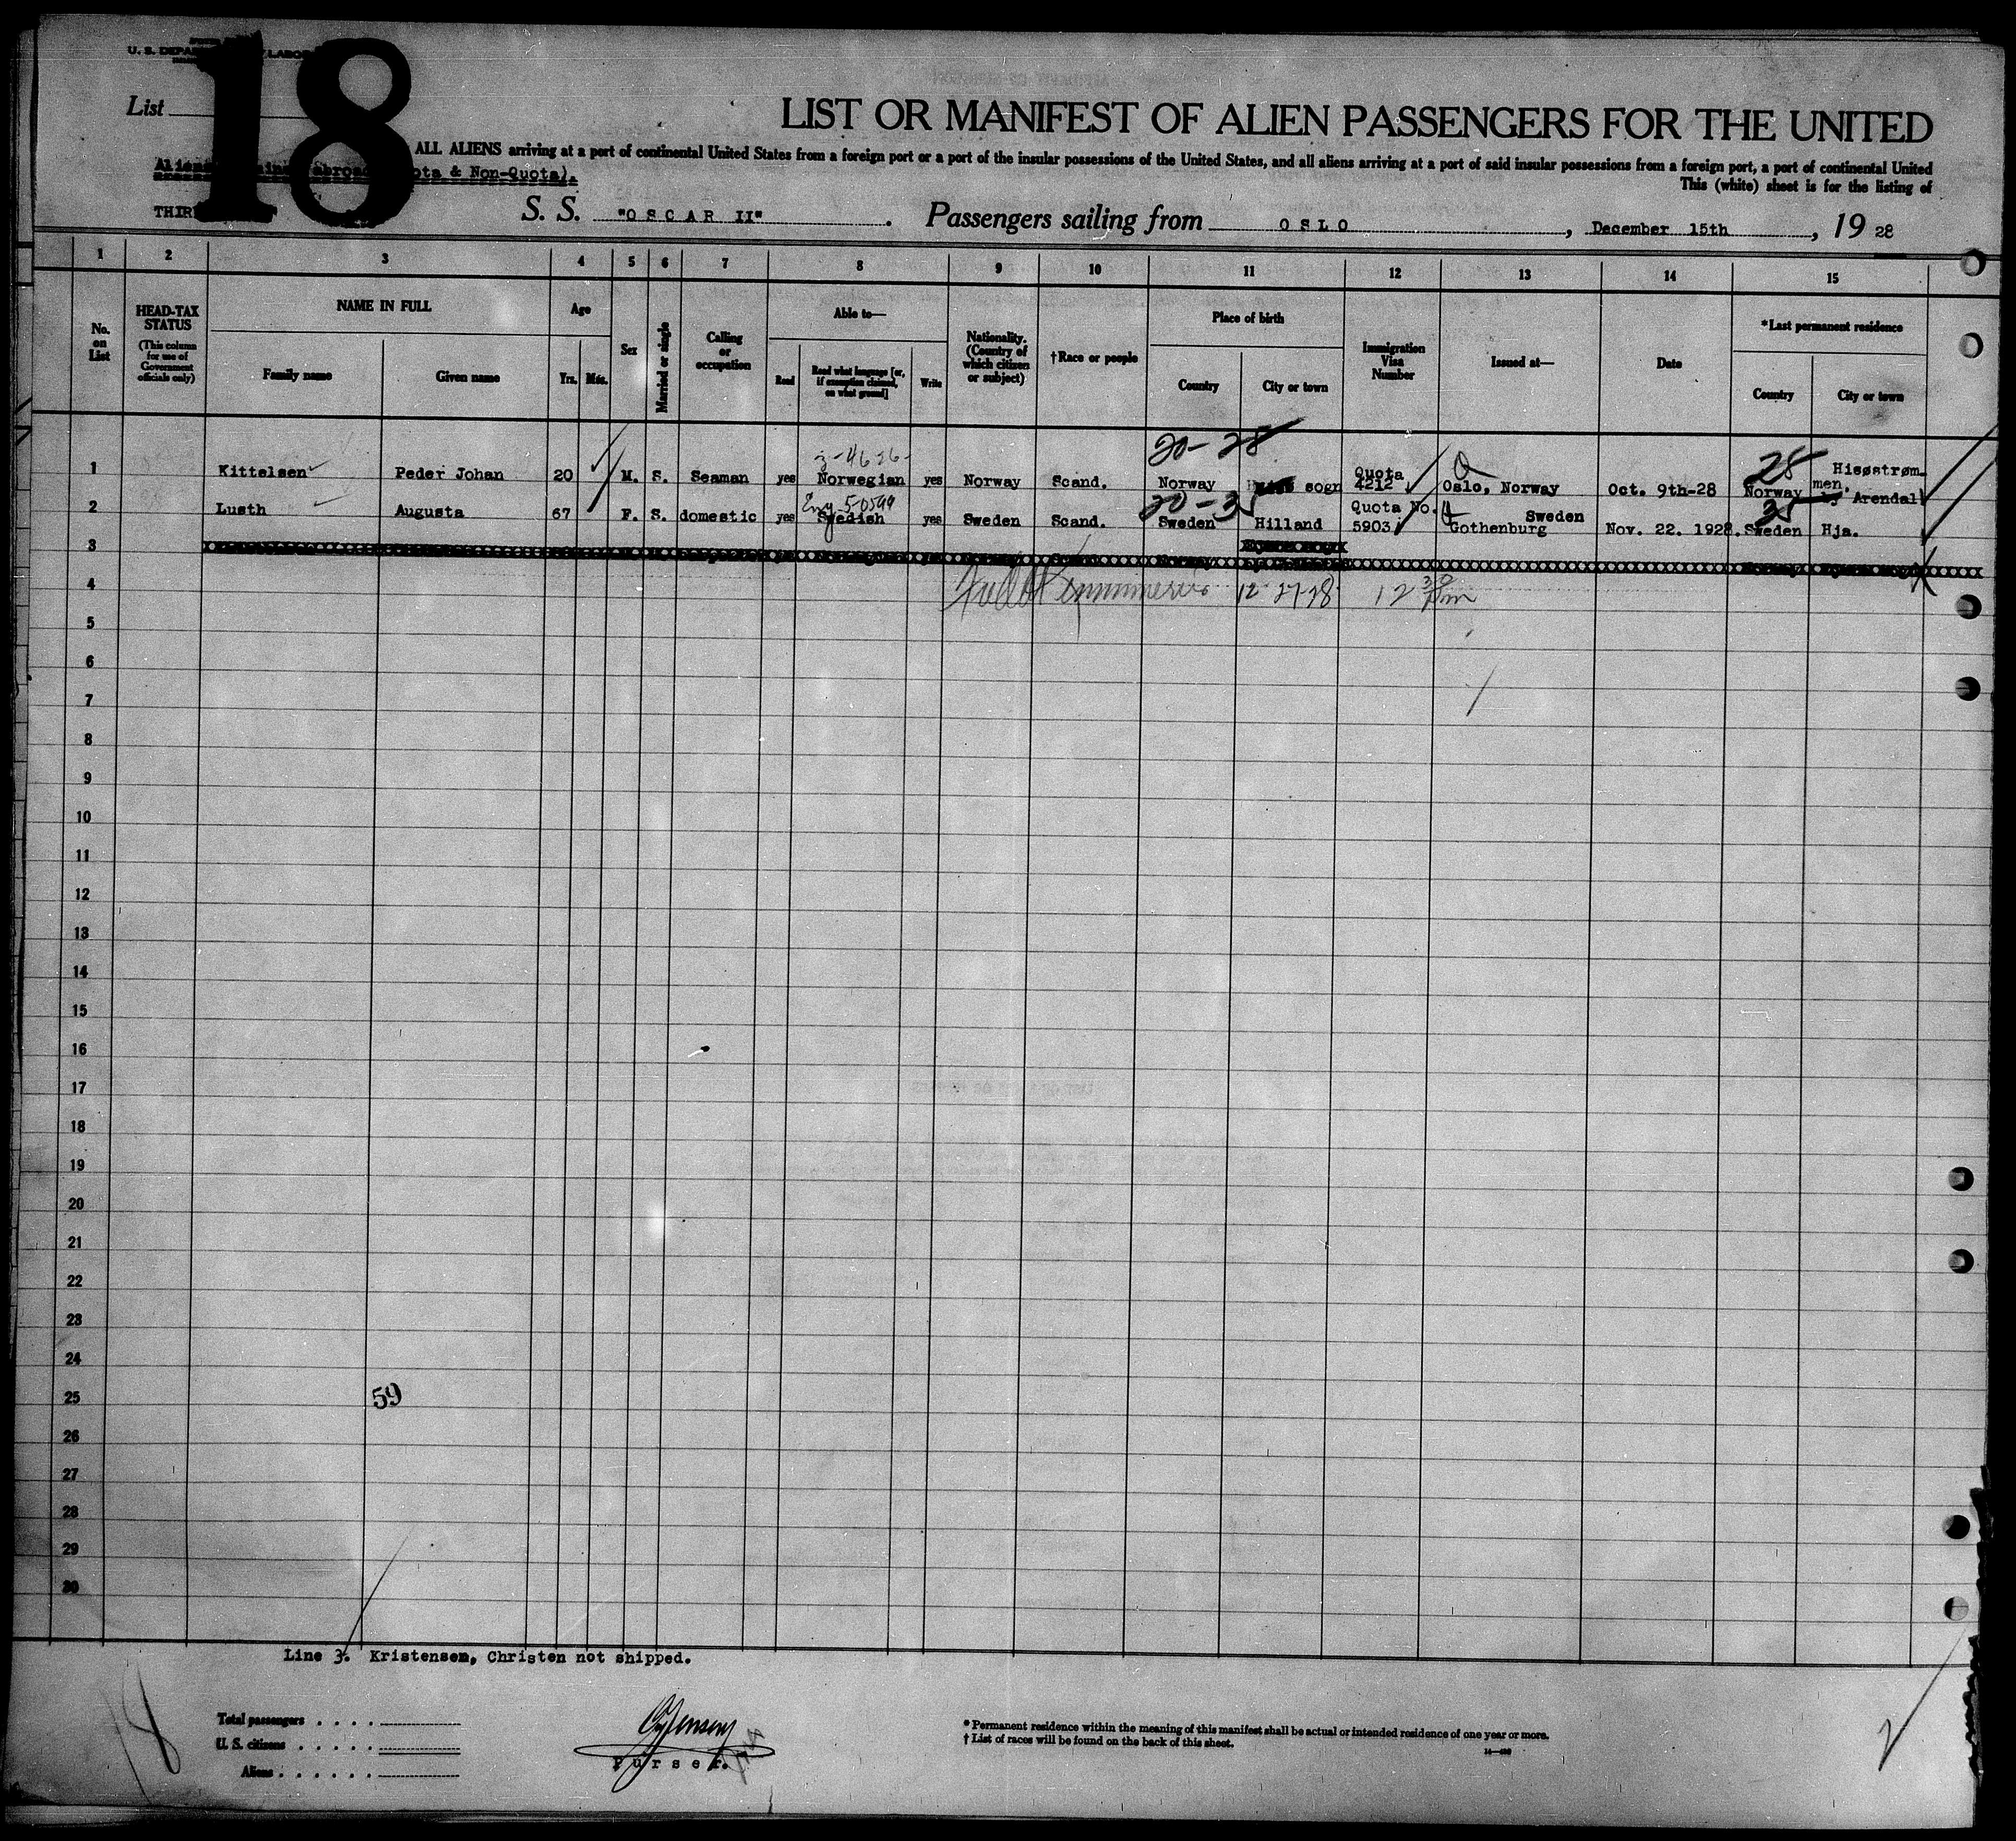 18
List
LIST OR MANIFEST OF ALIEN PASSENGERS FOR THE UNITED
ALL ALIENS arriving at a port of continental United States from a foreign port or a port of the insular possessions of the United States, and all aliens arriving at a port of said insular possessions from a foreign port, a port of continental United
This (white) sheet is for the listing of
& Non-Quota).
S. S. "OSCAR II". Passengers sailing from OSLO, December 15th, 1928
1 2 3 4 5 6 7 8 9 10 11 12 13 14 15
No. on List
HEAD-TAX STATUS
(This column for use of Government officials only)
NAME IN FULL
Family name
Given name
Age
Yrs. Mos.
Sex
Married or single
Calling or occupation
Able to—
Read
Read what language [or, if exemption claimed, on what ground]
Write
Nationality. (Country of which citizen or subject)
†Race or people
Place of birth
Country
City or town
Immigration Visa Number
Issued at—
Date
*Last permanent residence
Country
City or town
20-28
28
1 Kittelsen Peder Johan 20 M. S. Seaman yes Norwegian yes Norway Scand. Norway sogn Quota 4212 Oslo, Norway Oct. 9th-28 Norway Hisøstrøm men, Arendal
2 Lusth Augusta 67 F. S. domestic yes Swedish yes Sweden Scand. Sweden Hilland Quota No. 5903 Gothenburg Sweden Nov. 22. 1928. Sweden Hja.
3
4 12-27-28 12 30 pm
5
6
7
8
9
10
11
12
13
14
15
16
17
18
19
20
21
22
23
24
25 59
26
27
28
29
30
Line 3. Kristensen, Christen not shipped.
18
Total passengers
U. S. citizens
Aliens
Purser.
* Permanent residence within the meaning of this manifest shall be actual or intended residence of one year or more.
† List of races will be found on the back of this sheet.